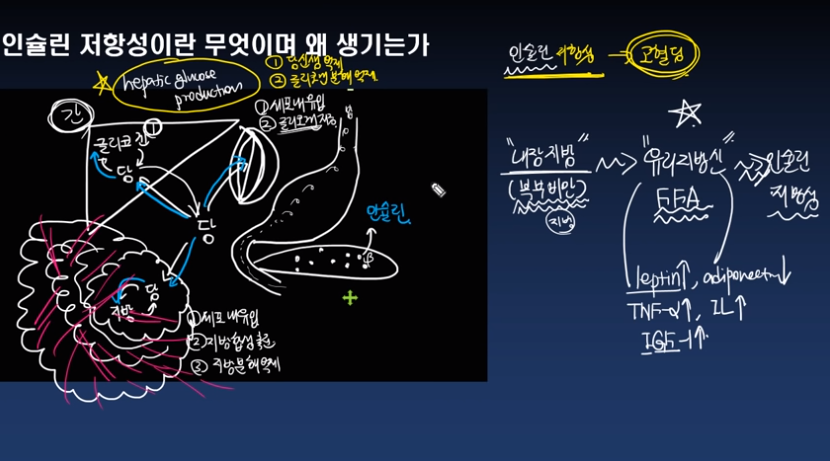 인슐린 저항성이란 무엇이며 왜 생기는가
hepatic glucose
production
① 당신생 억제
② 글리코겐 분해 억제
인슐린 저항성 → 고혈당
간
①
글리코겐
당
① 세포내 유입
② 글리코겐 저장
밥
당
인슐린
β
당
지방
① 세포내 유입
② 지방합성 촉진
③ 지방분해 억제
"내장지방"
(복부비만)
지방
"유리지방산"
FFA
인슐린
저항성
leptin↑, adiponectin↓
TNF-α↑, IL↑
IGF-1↑